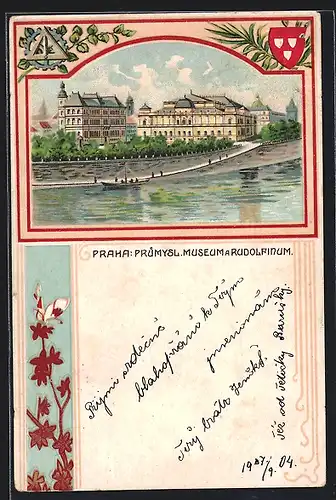 PRAHA: PRŮMYSL. MUSEUM A RUDOLFINUM.
Přijmi srdečné
blahopřání k Tvým
jmeninám
Tvůj bratr
Též od tetičky
19 27/9. 04.